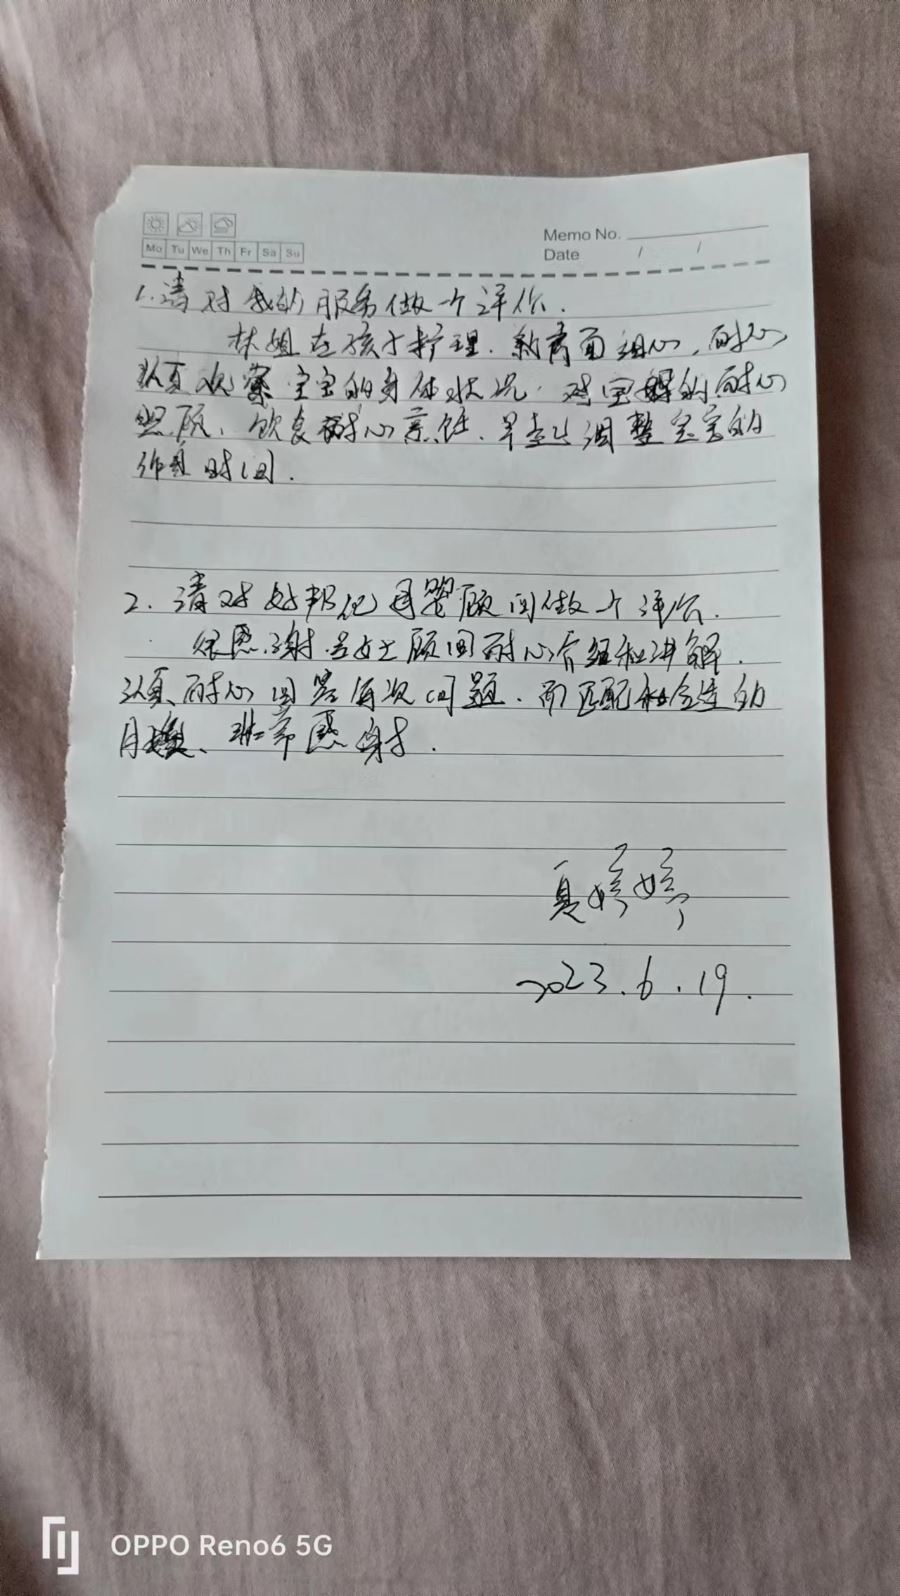 Memo No.
Mo Tu We Th Fr Sa Su
Date / /
1.请对我的服务做个评价.
林姐在孩子护理.新育面细心,耐心
认真观察宝宝的身体状况.对宝妈的耐心
照顾、饮食耐心烹饪.早起调整宝宝的
作息时间.
2.请对好邦妮母婴顾问做个评价.
很感谢女士顾问耐心介绍和讲解.
认真耐心回答每次问题.而匹配合适的
月嫂、非常感谢.
夏婷婷
2023.6.19.
OPPO Reno6 5G